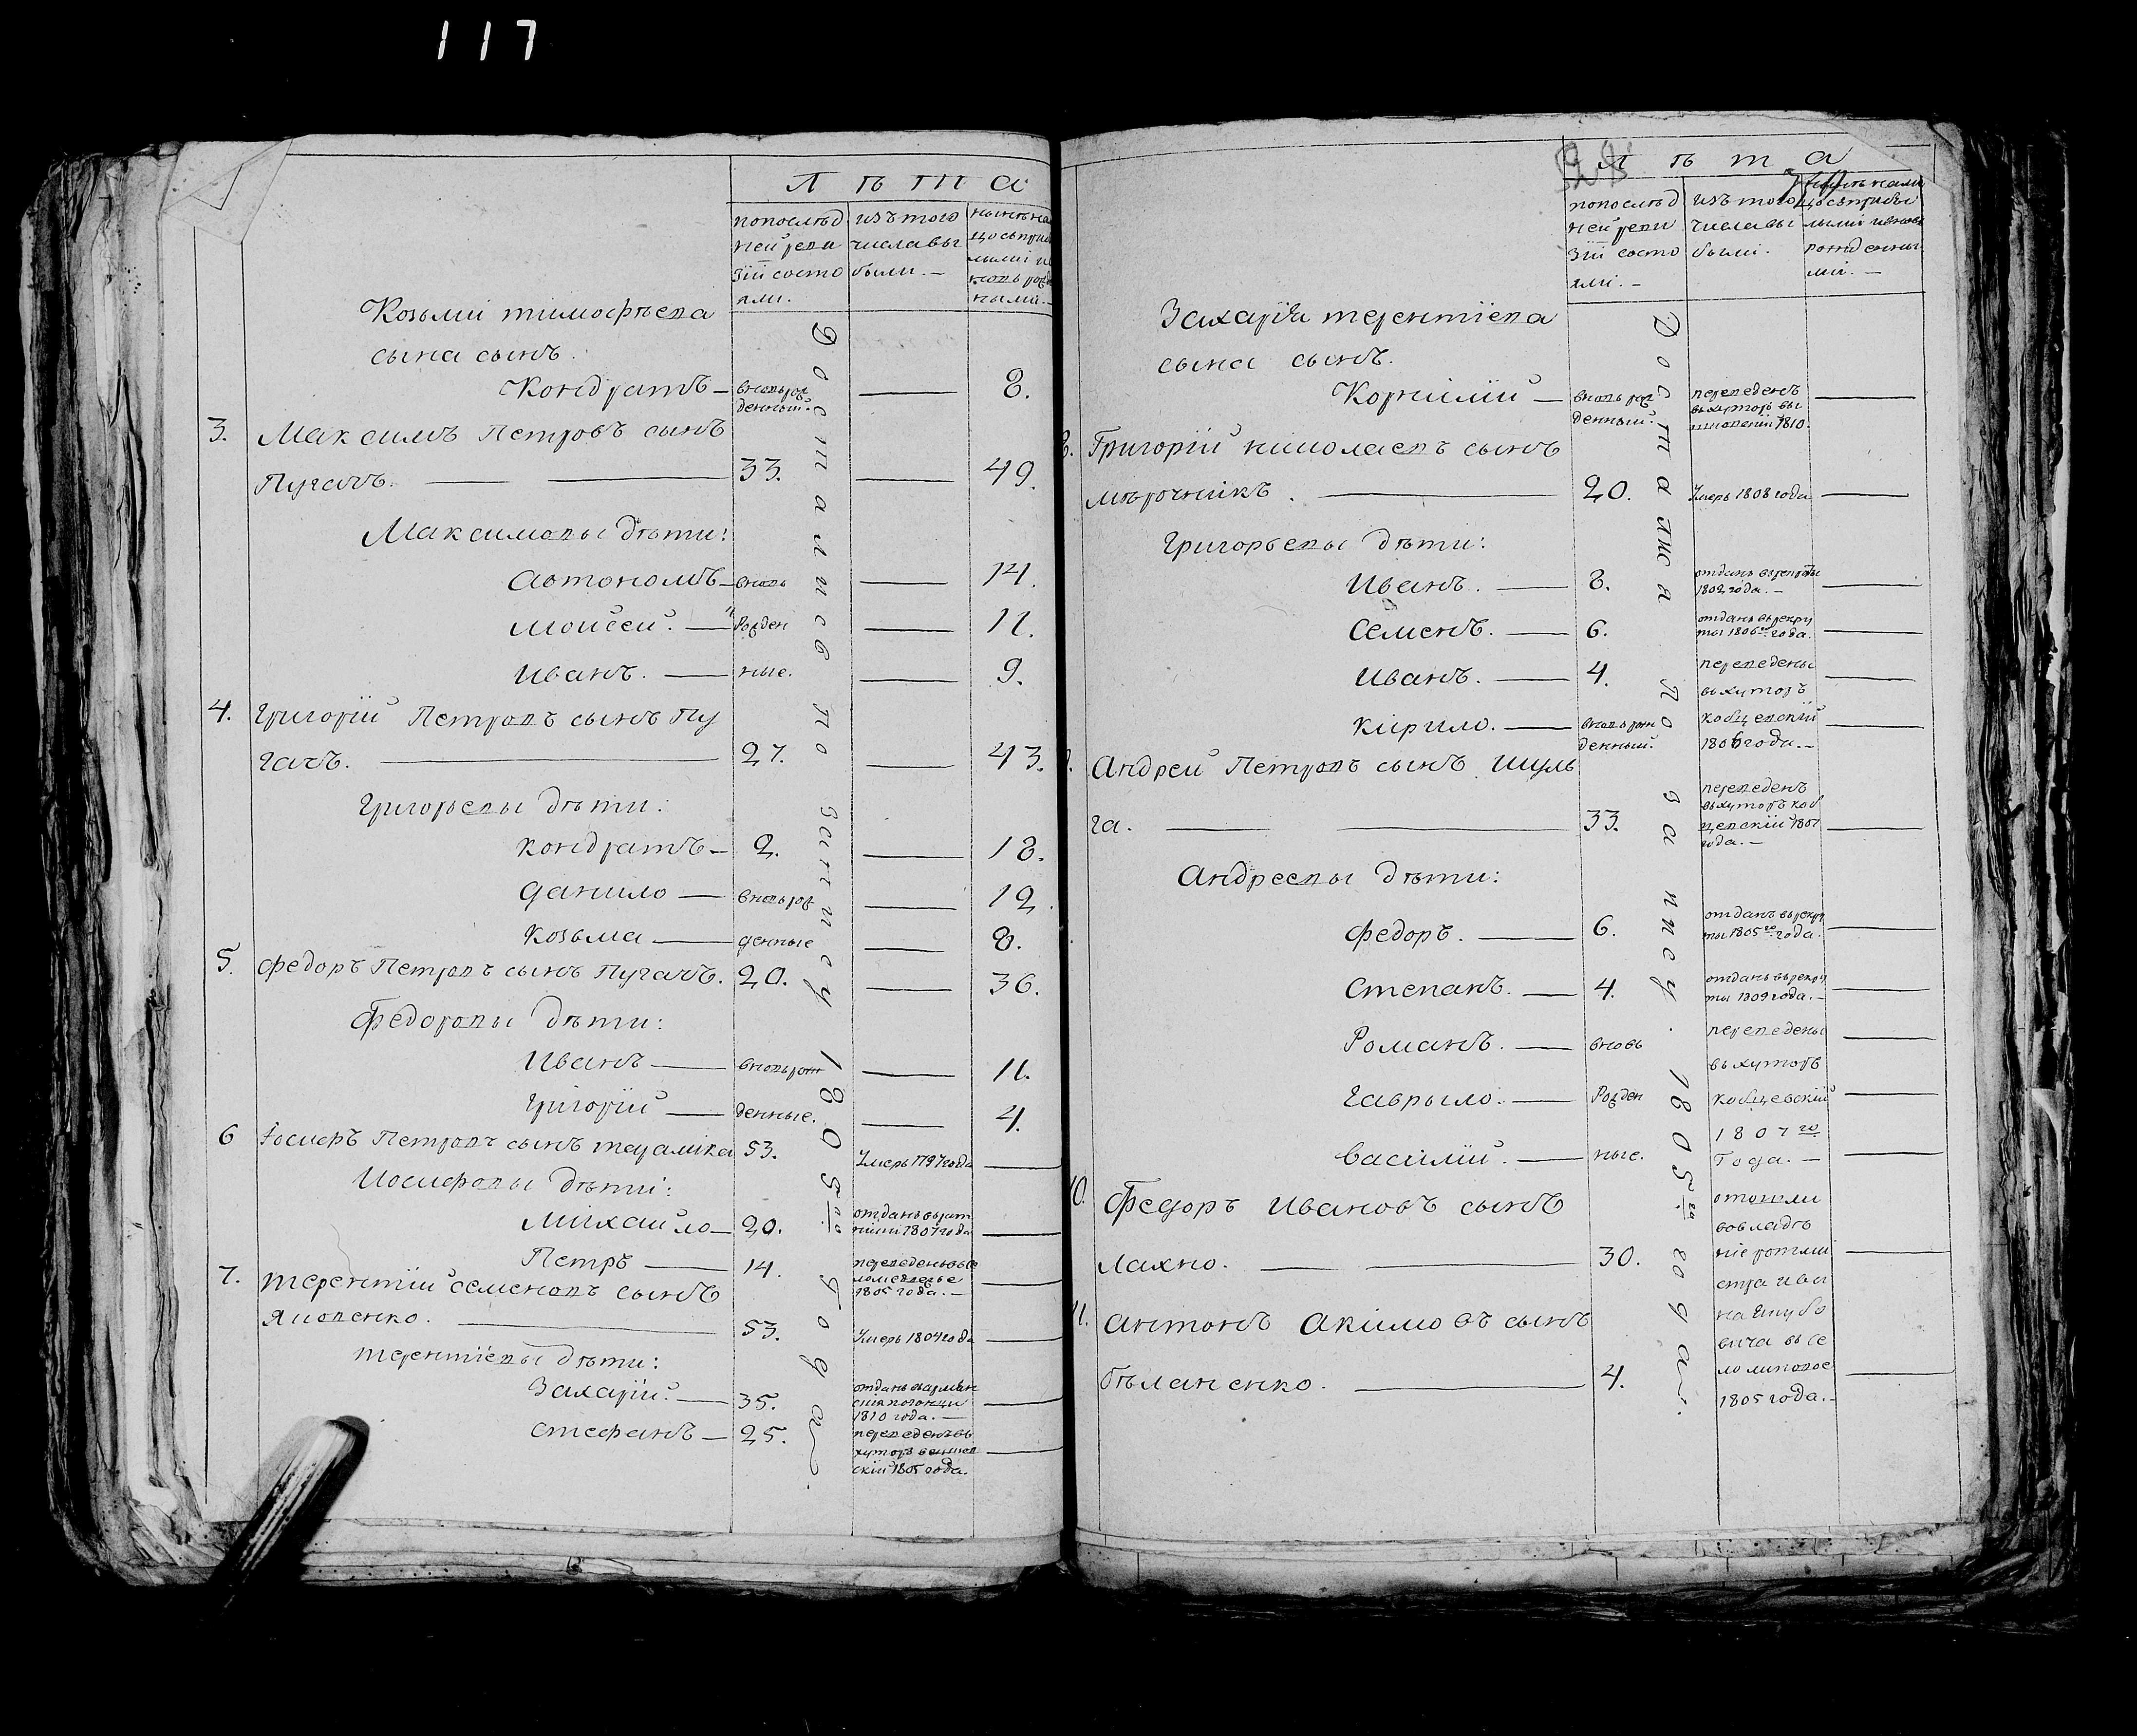 117
Л ѣ т а
попослѣд
ней реви
зіи состо
яли.
изъ того
числа вы
были. –
Козьми тимофѣева
сына сынъ.
Кондратъ – вновь рож
денный. — 8.
3. Максимъ Петровъ сынъ
Пугачъ. — 33. — 49.
Максимовы дѣти:
автономъ – вновь — 14.
моисей. — рожден — 11.
иванъ. — ные. — 9.
4. григорій Петровъ сынъ Пу
гачъ. — 27. — 43.
григорьевы дѣти:
кондратъ – 2. — 18.
данило — вновь рож — 12.
козьма — денные — 8.
5. федоръ Петровъ сынъ Пугачъ. 20. — 36.
Федоровы дѣти:
иванъ — вновь рож — 11.
григорій — денные. — 4.
6 Іосифъ Петровъ сынъ 53. Умеръ 1797 года —
Иосифовы дѣти:
михайло – 20. 1807 года —
Петръ — 14. переведенъ
1805 года. – —
7. терентій семеновъ сынъ
Яковенко. — 53. Умеръ 1804 года —
терентіевы дѣти:
Захарій. — 35. отданъ
1810 года. – —
стефанъ – 25. переведенъ въ
хуторъ
скій 1805 года. —
Достались по запису 1805го года.
Л ѣ т а
попослѣд
ней реви
зіи состо
яли. –
изъ того
числа вы
были.
рожденны
ми. –
Захарія терентіева
сына сынъ.
Корнилій — вновь рож
денный. переведенъ
въ хуторъ 1810. —
8. Григорій николаевъ сынъ
мѣрочникъ. — 20. Умеръ 1808 года —
Григорьевы дѣти:
иванъ. — 8. отданъ въ рекруты
1802 года. – —
семенъ. — 6. отданъ въ рекру
ты 1806го года. —
иванъ. — 4. переведены —
въ хуторъ
кирило. — вновь рож кобцевский —
денный. 1806 года. –
9. андрей Петровъ сынъ шуль
га. — 33. переведенъ
въ хуторъ коб
цевскій 1807
года. – —
андреевы дѣти:
федоръ. — 6. отданъ въ рекру
ты 1805го года. —
степанъ. — 4. отданъ въ рекру
ты 1809 года. – —
Романъ. — вновь переведены —
въ хуторъ
гаврыло. — Рожден кобцевскій —
1807го
василій. — ные. Года. – —
10. федоръ ивановъ сынъ
Лахно. — 30. —
11. антонъ акимовъ сынъ
бѣланенко. — 4. —
отошли
вовладѣ
ніе ротми
стра ива
на
вича въ се
ло липовое
1805 года. –
Достался по запису. 1805го года.